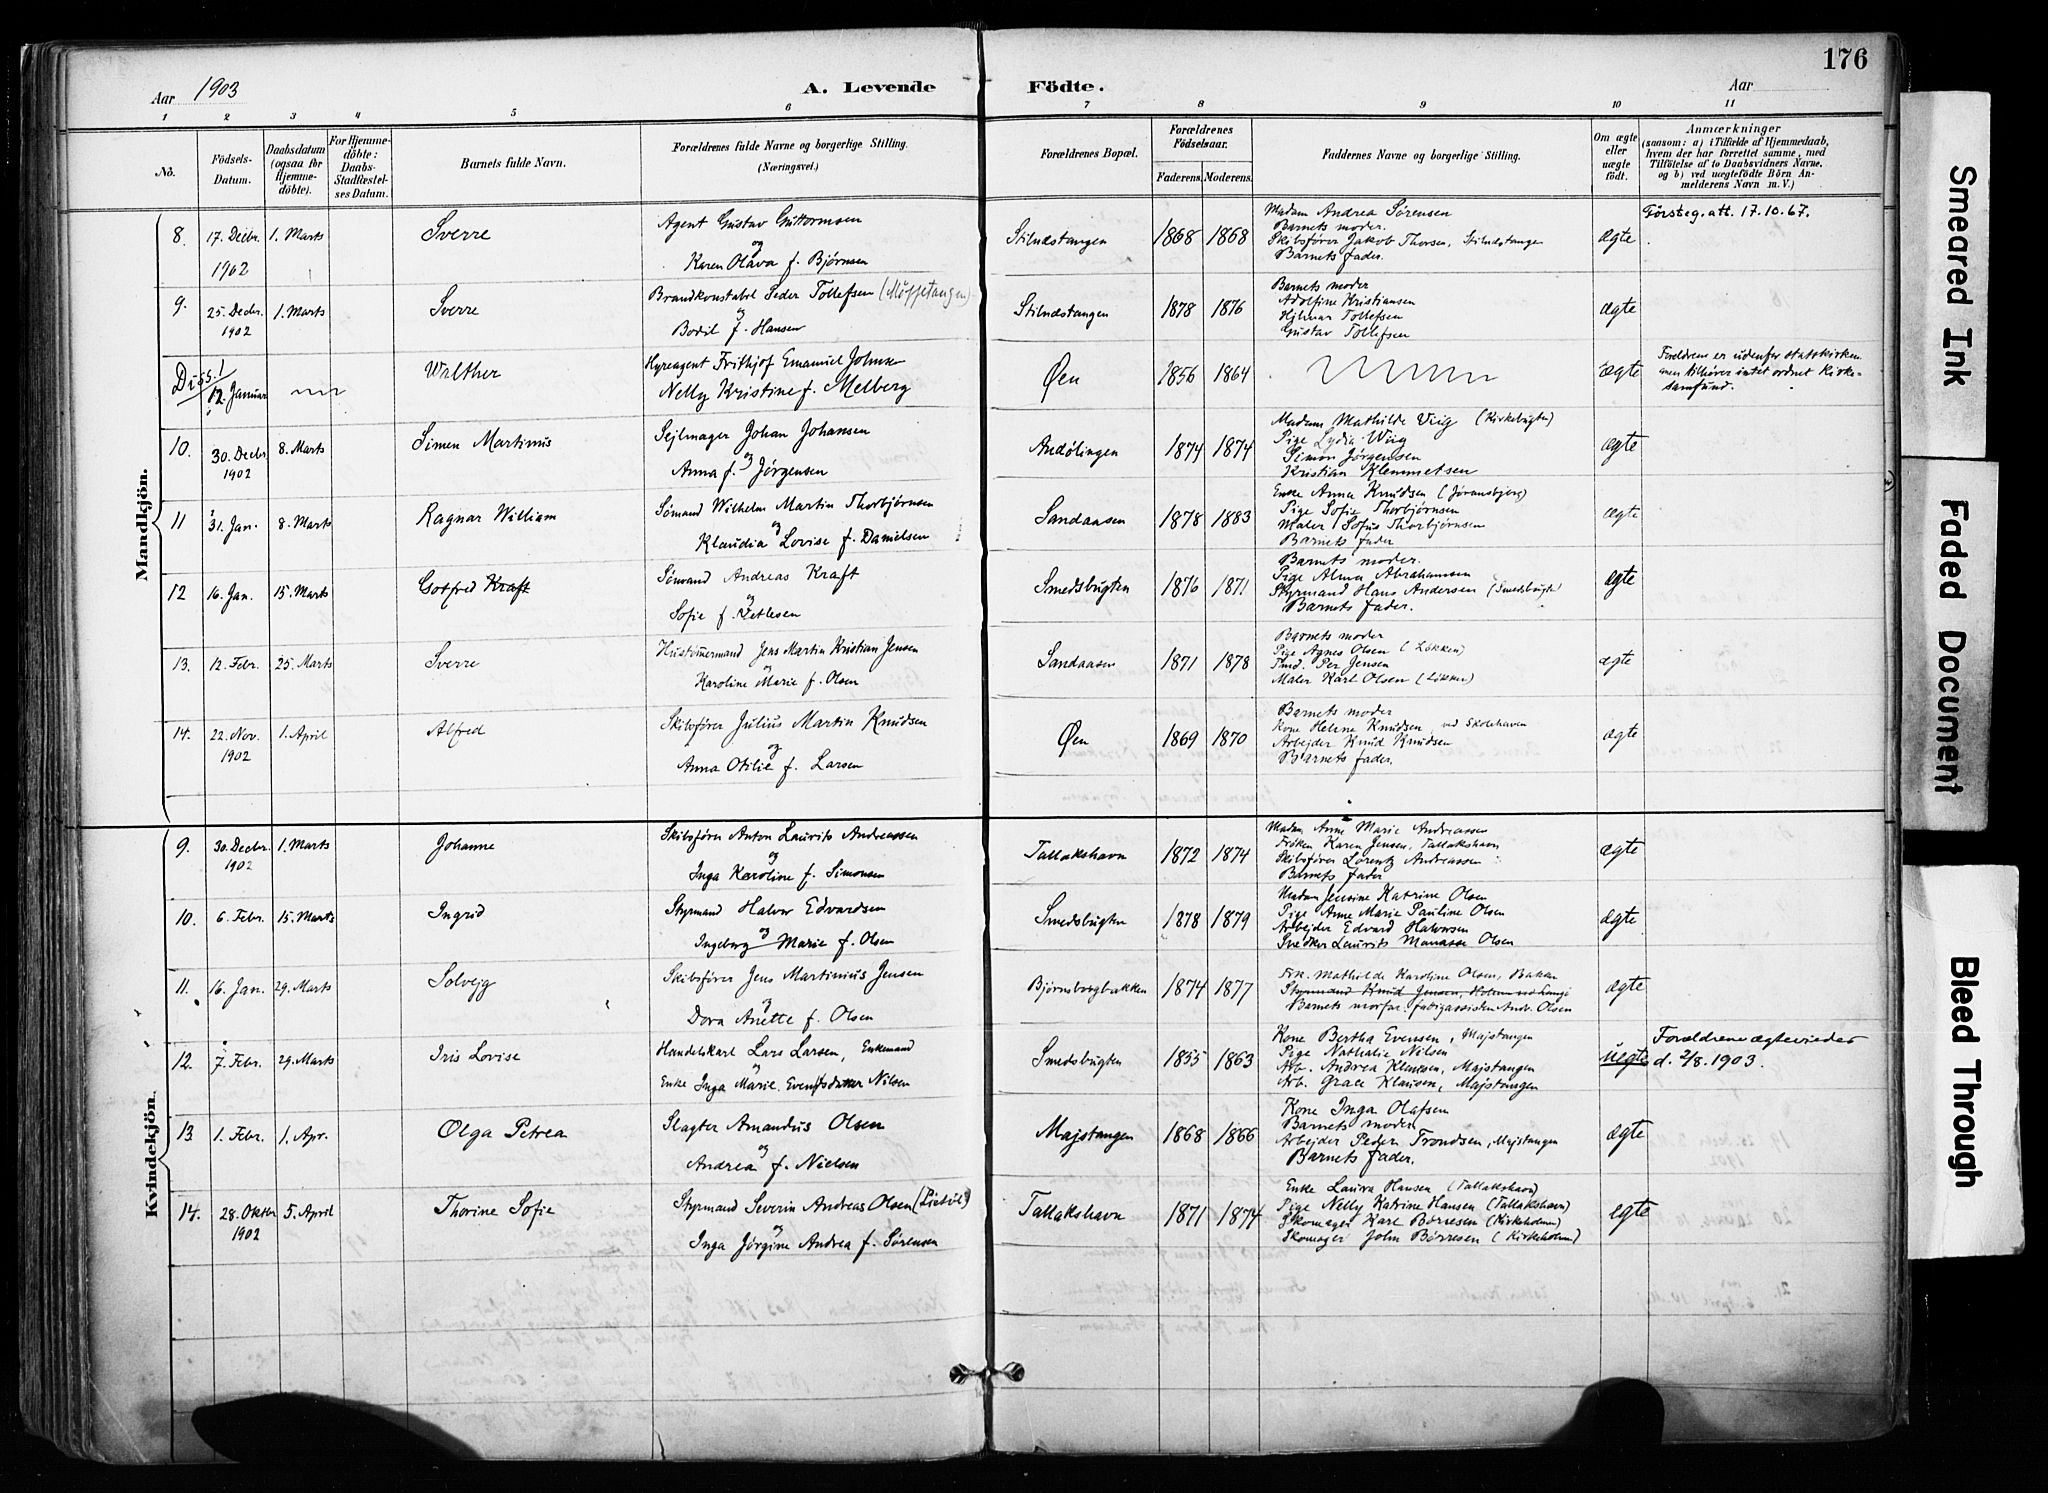 176
Aar 1903
A. Levende Födte.
Aar
1 2 3 4 5 6 7 8 9 10 11
No.
Födsels-Datum.
Daabsdatum (ogsaa for Hjemme-döbte).
For Hjemme-döbte: Daabs-Stadfæstel-ses Datum.
Barnets fulde Navn.
Forældrenes fulde Navne og borgerlige Stilling.
(Næringsvei.)
Forældrenes Bopæl.
Forældrenes Födselsaar.
Faderens. Moderens.
Faddernes Navne og borgerlige Stilling.
Om ægte eller uægte födt.
Anmærkninger
(sansom: a) i Tilfælde af Hjemmedaab, hvem der har forrettet samme, med Tilföielse af to Daabsvidners Navne, og b) ved uægtefödte Börn An-melderens Navn m. V.)
Mandkjön.
8. 17. Decbr. 1902 1. Marts Sverre
Agent Gustav Guttormsen
og
Karen Olava f. Bjørnsen
Stilnæstangen 1868 1868
Madam Andrea Sørensen
Barnets moder.
Skibsfører Jakob Thorsen, Stilnæstangen
Barnets fader.
ægte
Førsteg. att. 17.10.67.
9. 25. Decbr. 1902 1. Marts Sverre
Brandkonstabel Peder Tollefsen
og
Bodil f. Hansen
Stilnæstangen 1878 1876
Barnets moder
Adolfine Kristiansen
Hjlmar Tollefsen
Gustav Tollefsen
ægte
Diss. 1
12. Januar Walther
Hyreagent Frithjof Emanuel Johnsen
Nelly Kristine f. Melberg
Øen 1856 1864
ægte
Foreldrene er udenfor statskirken
men tilhører intet ordnet Kirke-
samfund.
10. 30. Decbr 1902 8. Marts Simen Martinus
Sejlmager Johan Johansen
og
Anna f. Jørgensen
Andølingen 1874 1874
Madam Mathilde Viig (Kirkebugten)
Pige Lydia Wiig
Simon Jørgensen
Kristian Klemmetsen
ægte
11 31. Jan. 8. Marts Ragnar William
Sømand Wilhelm Martin Thorbjørnsen
og
Klaudia Lovise f. Danielsen
Sandaasen 1878 1883
Enke Anna Knudsen
Pige Sofie Thorbjørnsen
Maler Sofus Thorbjørnsen
Barnets fader
ægte
12 16. Jan. 15. Marts Gotfred Kraft
Sømand Andreas Kraft
og
Sofie f. Zetlesen
Smedsbugten 1876 1871
Barnets moder.
Pige Alma Abrahamsen
Styrmand Hans Andersen (Smedsbugte
Barnets fader.
ægte
13. 12. Febr. 25. Marts Sverre
Hustømmermand Jens Martin Kristian Jensen
og
Karoline Marie f. Olsen
Sandaasen 1871 1878
Barnets moder
Pige Agnes Olsen (Løkken)
Tmd. Per Jensen
Maler Karl Olsen (Løkken)
ægte
14. 22. Nov. 1902 1. April Alfred
Skibsfører Julius Martin Knudsen
og
Anna Otilie f. Larsen
Øen 1869 1870
Barnets moder
Kone Helene Knudsen, ved Skolehaven
Arbejder Knud Knudsen
Barnets fader.
ægte
Kvindekjön.
9. 30. Decbr. 1902 1. Marts Johanne
Skibsfører Anton Laurits Andreassen
og
Inga Karoline f. Simonsen
Tallakshavn 1872 1874
Madam Anne Marie Andreassen
Frøken Karen Jensen, Tallakshavn
Skibsfører Lorentz Andreassen
Barnets fader
ægte
10. 6. Febr. 15. Marts Ingrid
Styrmand Halvor Edvardsen
og
Ingeborg Marie f. Olsen
Smedsbugten 1878 1879
Madam Jensine Katrine Olsen
Pige Anne Marie Pauline Olsen
Arbejder Edvard Halvorsen
Snedker Laurits Manasse Olsen
ægte
11. 16. Jan. 29. Marts Solvejg
Skibsfører Jens Martinius Jensen
og
Dora Anette f. Olsen
Bjørnsborgbakken 1874 1877
Frk. Mathilde Karoline Olsen, Bakken
Styrmand Knud Jensen,
Barnets morfar. fattigassistent Andr. Olsen
ægte
12. 7. Febr. 29. Marts Iris Lovise
Handelskarl Lars Larsen, Enkemand
og
Enke Inga Marie Evensdatter Nilsen
Smedsbugten 1855 1863
Kone Bertha Evensen, Majstangen
Pige Nathalie Nilsen
Arb. Andrea Klausen, Majstangen
Arb. Grace Klausen, Majstangen
uegte
Forældrene ægtevieder
d. 2/8. 1903.
13. 1. Febr. 1. Apr. Olga Petrea
Slagter Amandus Olsen
og
Andrea f. Nielsen
Majstangen 1868 1866
Kone Inga Olafsen
Barnets moder
Arbejder Peder Trondsen, Majstangen
Barnets fader.
ægte
14. 28. Oktbr 1902 5. April Thorine Sofie
Styrmand Severin Andreas Olsen
og
Inga Jørgine Andrea f. Sørensen
Tallakshavn 1871 1874
Enke Laura Hansen (Tallakshavn)
Pige Nelly Katrine Hansen (Tallakshavn)
Skomager Karl Børresen (Kirkeholmen)
Skomager John Børresen (Kirkeholm)
egte
Smeared Ink
Faded Document
Bleed Through